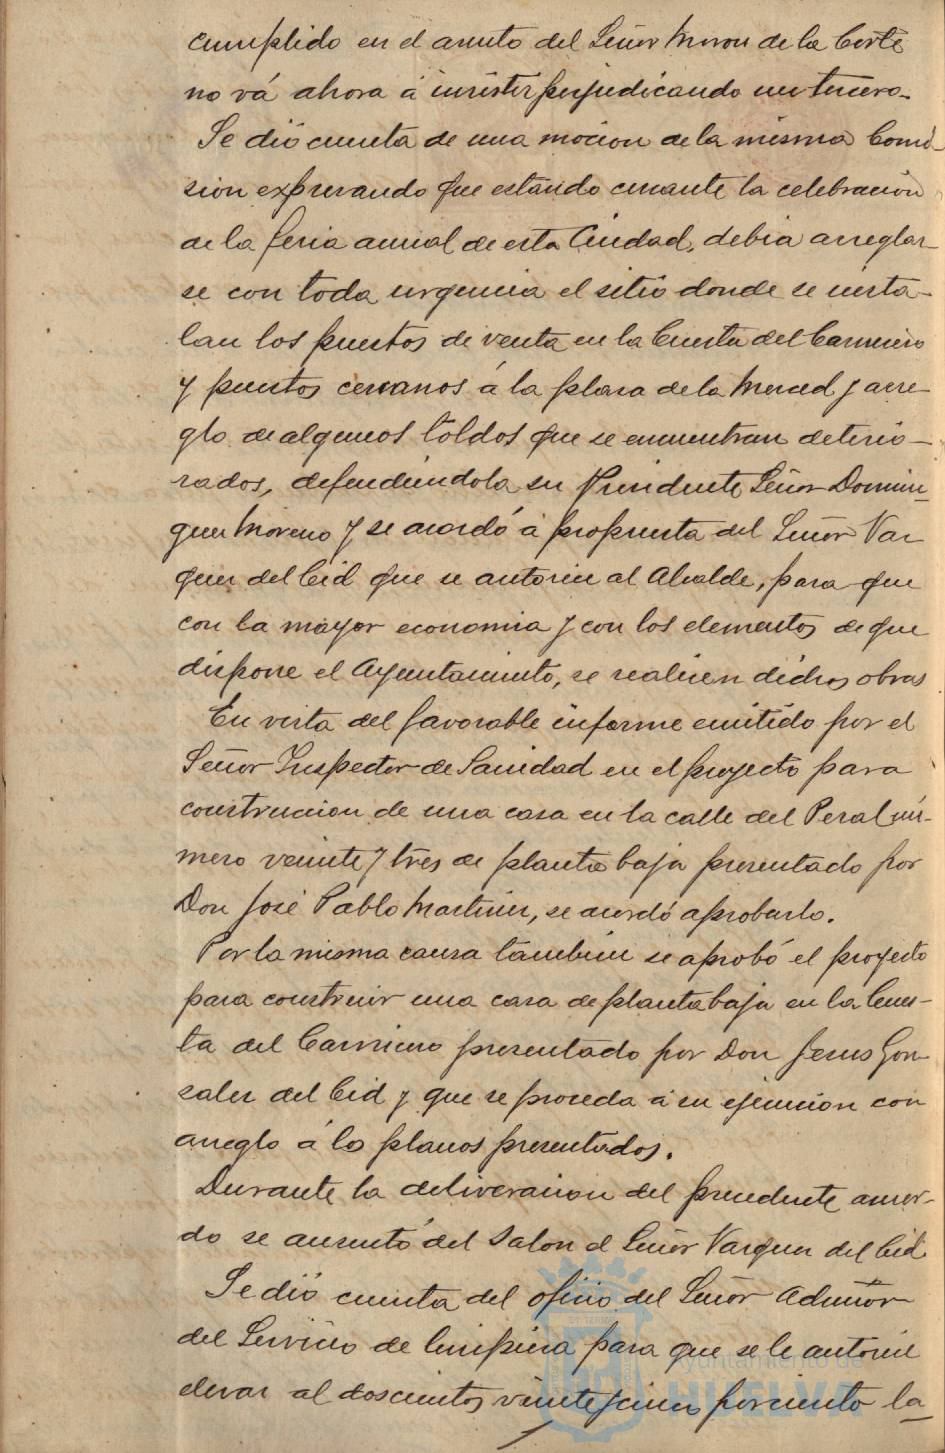 cumplido en el asunto del Señor Moron de la Corte
no vá ahora á insistir perjudicando un tercero.
Se dió cuenta de una mocion de la misma Comi-
sion expresando que estando cercante la celebracion
de la feria anual de esta Ciudad, debia arreglar-
se con toda urgencia el sitio donde se insta-
lan los puestos de venta en la Cuesta del Carnicero
y puestos cercanos á la plaza de la Merced y arre-
glo de algunos toldos que se encuentran deterio-
rados, defendiendola su Presidente Señor Domin-
guez Moreno y se acordó á propuesta del Señor Vaz-
quez del Cid que se autorice al Alcalde, para que
con la mayor economia y con los elementos de que
dispone el Ayuntamiento, se realicen dichas obras
En vista del favorable informe emitido por el
Señor Inspector de Sanidad en el proyecto para
construccion de una casa en la calle del Peral nú-
mero veinte y tres de planta baja presentado por
Don José Pablo Martinez, se acordó aprobarlo.
Por la misma causa tambien se aprobó el proyecto
para construir una casa de planta baja en la Cues-
ta del Carnicero presentado por Don Jesus Gon-
zalez del Cid y que se proceda á su ejecucion con
arreglo á los planos presentados.
Durante la deliveracion del precedente acuer-
do se ausentó del Salon el Señor Vazquez del Cid
Se dió cuenta del oficio del Señor Admtor
del Servicio de limpieza para que se le autorice
elevar al doscientos veinte y cinco porciento la
Ayuntamiento de
HUELVA